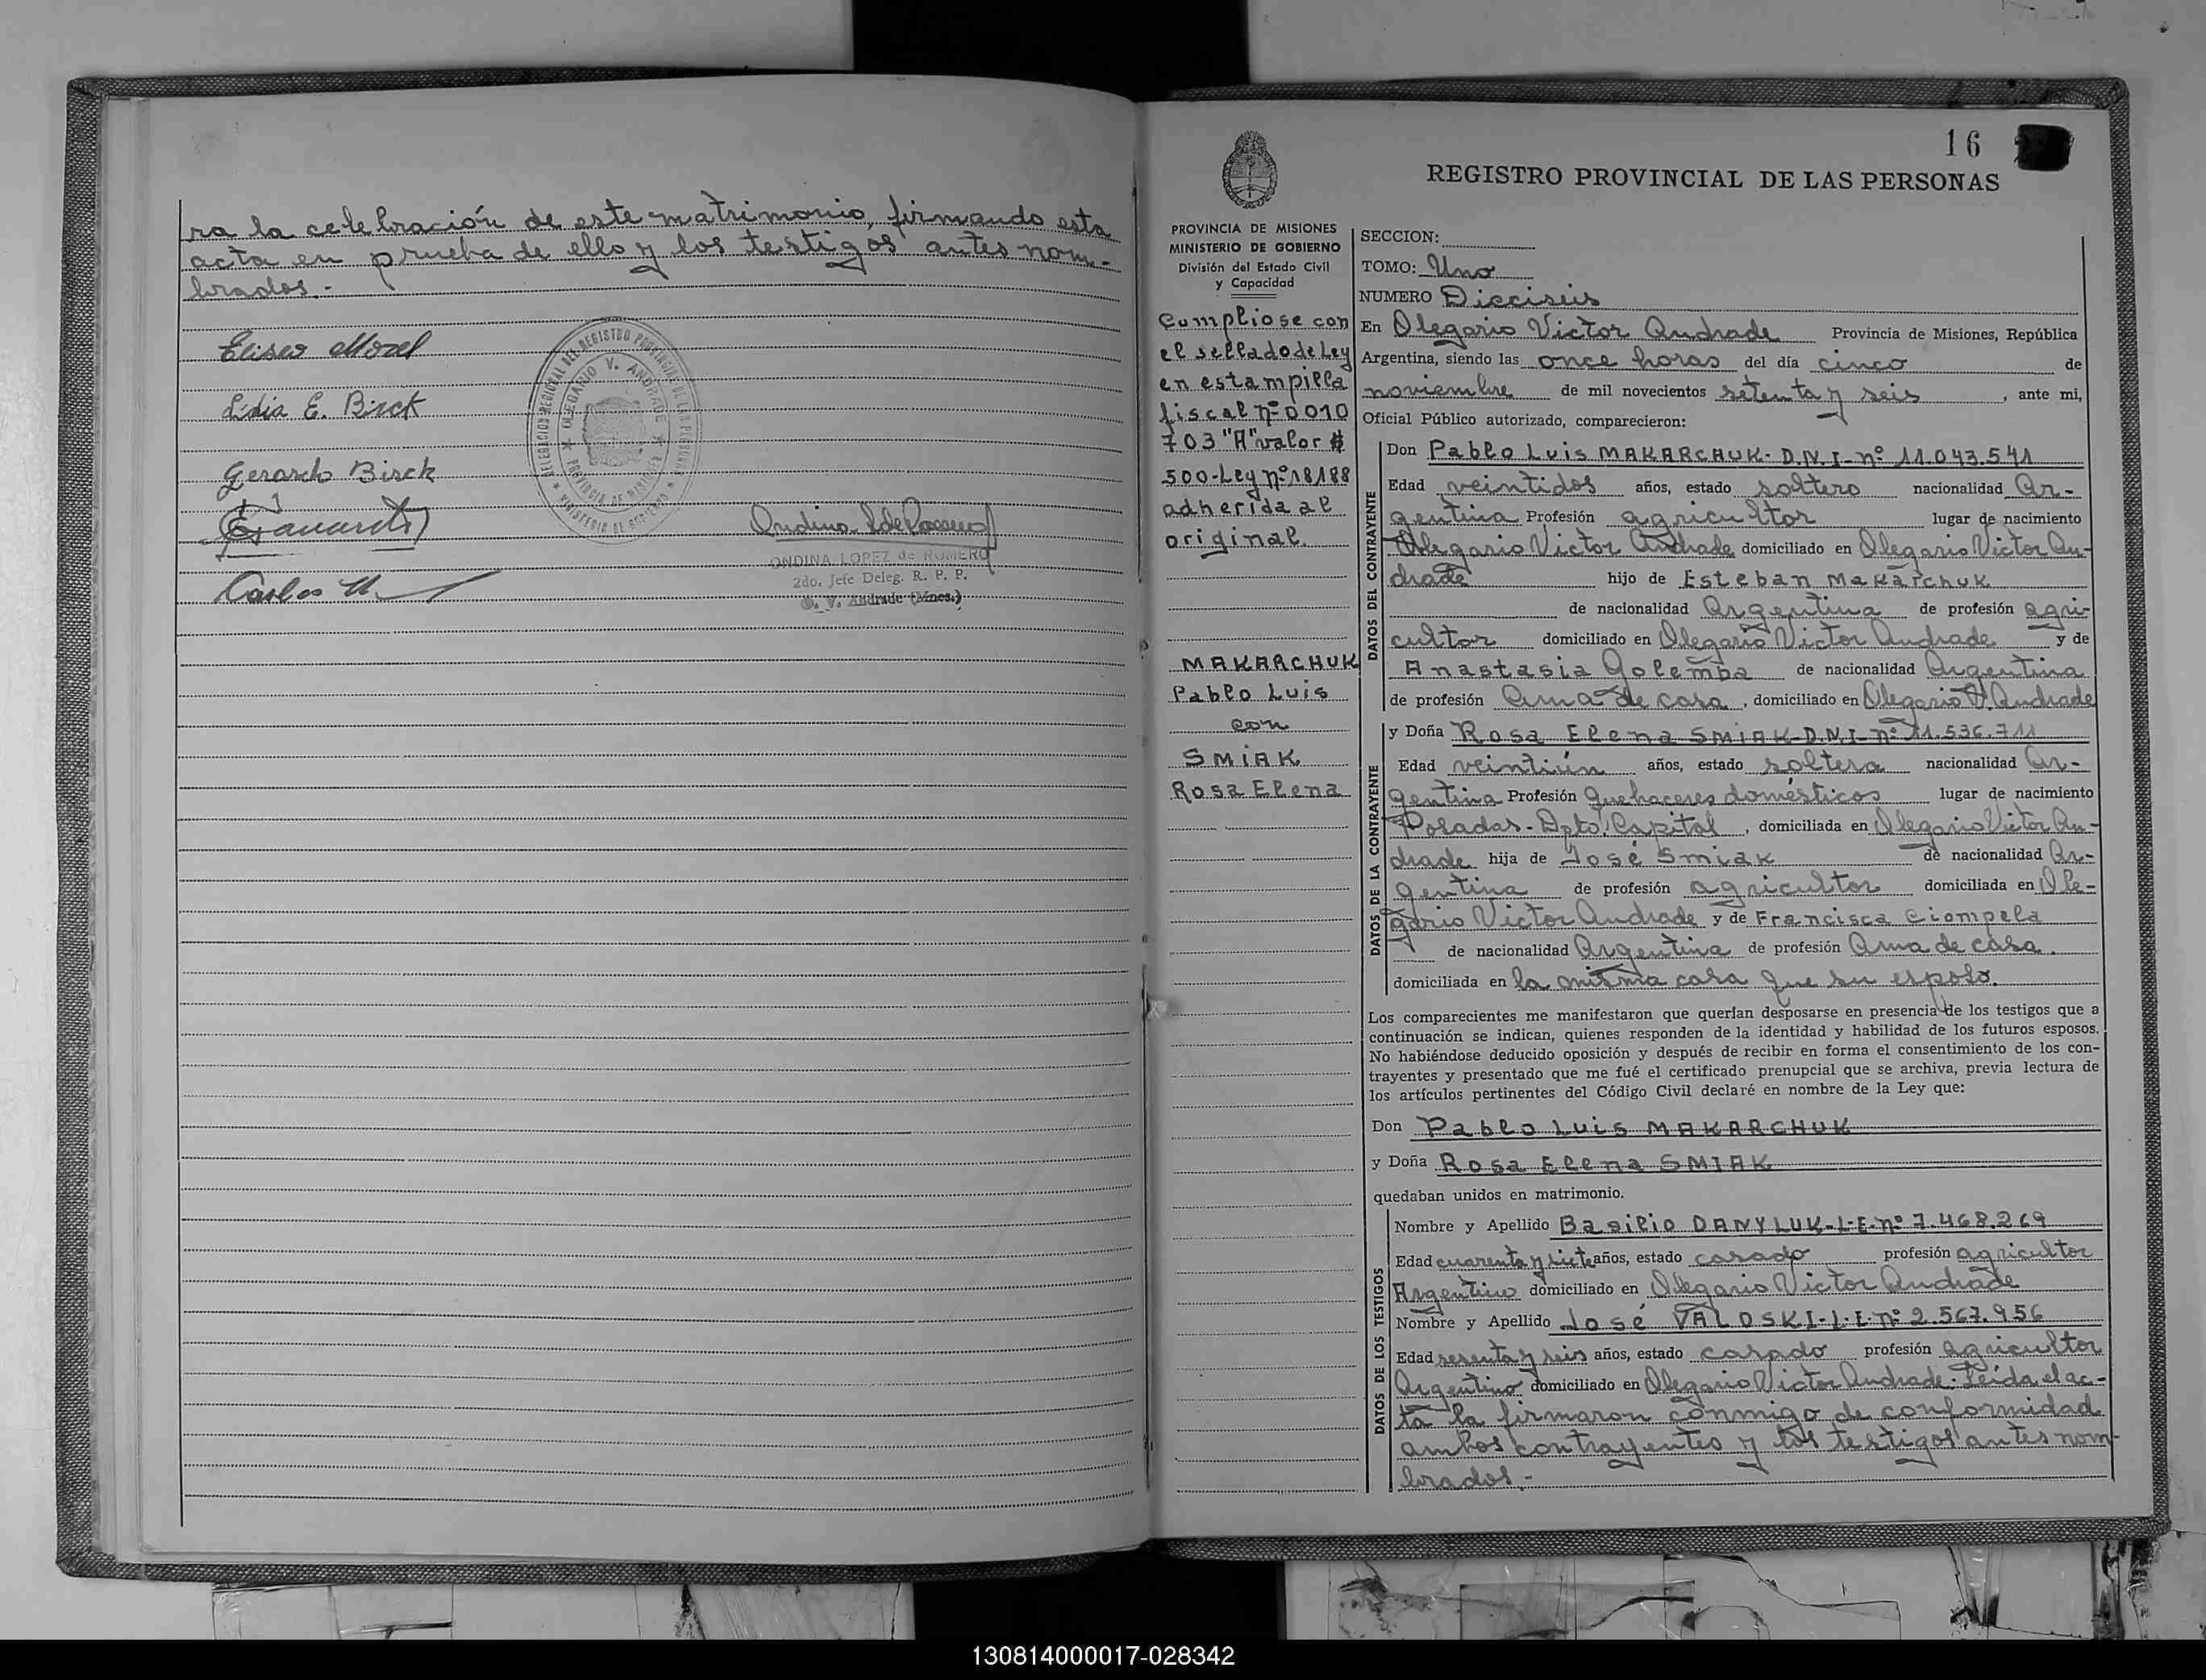 ra la celebración de este matrimonio, firmando esta
acta en prueba de ello y los testigos antes nom-
brados.-
Eliseo Morel
Lidia E. Birck
Gerardo Birck
Carlos
DELEGACION REGIONAL DEL REGISTRO PROVINCIAL DE LAS PERSONAS
OLEGARIO V. ANDRADE
PROVINCIA DE MISIONES
MINISTERIO DE GOBIERNO
ONDINA LOPEZ de ROMERO
2do. Jefe Deleg. R. P. P.
O. V. Andrade (Mnes.)
16
REGISTRO PROVINCIAL DE LAS PERSONAS
PROVINCIA DE MISIONES
MINISTERIO DE GOBIERNO
División del Estado Civil
y Capacidad
Cumpliose con
el sellado de Ley
en estampilla
fiscal nº 0010
703 "A" valor $
500-Ley nº 18188
adherida al
original.
MAKARCHUK
Pablo Luis
con
SMIAK
Rosa Elena
SECCION:
TOMO: Uno
NUMERO Dieciseis
En Olegario Victor Andrade Provincia de Misiones, República
Argentina, siendo las once horas del día cinco de
noviembre de mil novecientos setenta y seis , ante mi,
Oficial Público autorizado, comparecieron:
DATOS DEL CONTRAYENTE
Don Pablo Luis MAKARCHUK- D.N.I- nº 11.043.541
Edad veintidos años, estado soltero nacionalidad Ar-
gentina Profesión agricultor lugar de nacimiento
Olegario Victor Andrade domiciliado en Olegario Victor An-
drade hijo de Esteban Makarchuk
de nacionalidad Argentina de profesión agri-
cultor domiciliado en Olegario Victor Andrade y de
Anastasia Golemba de nacionalidad Argentina
de profesión Ama de casa , domiciliado en Olegario V. Andrade
DATOS DE LA CONTRAYENTE
y Doña Rosa Elena SMIAK-D.N.I- nº 11.536.711
Edad veintiún años, estado soltera nacionalidad Ar-
gentina Profesión Quehaceres domésticos lugar de nacimiento
Posadas- Dpto. Capital , domiciliada en Olegario Victor An-
drade hija de José Smiak de nacionalidad Ar-
gentina de profesión agricultor domiciliada en Ole-
gario Victor Andrade y de Francisca Ciompela
de nacionalidad Argentina de profesión Ama de casa.
domiciliada en la misma casa que su esposo.
Los comparecientes me manifestaron que querían desposarse en presencia de los testigos que a
continuación se indican, quienes responden de la identidad y habilidad de los futuros esposos.
No habiéndose deducido oposición y después de recibir en forma el consentimiento de los con-
trayentes y presentado que me fué el certificado prenupcial que se archiva, previa lectura de
los artículos pertinentes del Código Civil declaré en nombre de la Ley que:
Don Pablo Luis MAKARCHUK
y Doña Rosa Elena SMIAK
quedaban unidos en matrimonio.
DATOS DE LOS TESTIGOS
Nombre y Apellido Basilio DANYLUK-L-E- nº 7.468.269
Edad cuarenta y siete años, estado casado profesión agricultor
Argentino domiciliado en Olegario Victor Andrade
Nombre y Apellido José VALOSKI-L.E. nº 2.567.956
Edad sesenta y seis años, estado casado profesión agricultor
Argentino domiciliado en Olegario Victor Andrade. Leída el ac-
ta la firmaron conmigo de conformidad
ambos contrayentes y los testigos antes nom-
brados.-
130814000017-028342